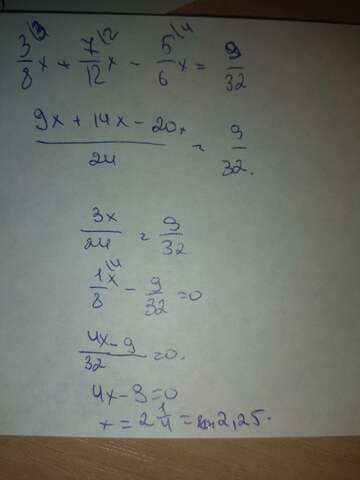 3/8 (3 x + 7/12 (2 x - 5/6 (4 x = 9/32
(9x + 14x - 20x)/24 = 9/32.
3x/24 = 9/32
1/8 x (4 - 9/32 = 0
(4x - 9)/32 = 0.
4x - 9 = 0
x = 2 1/4 = 2,25.